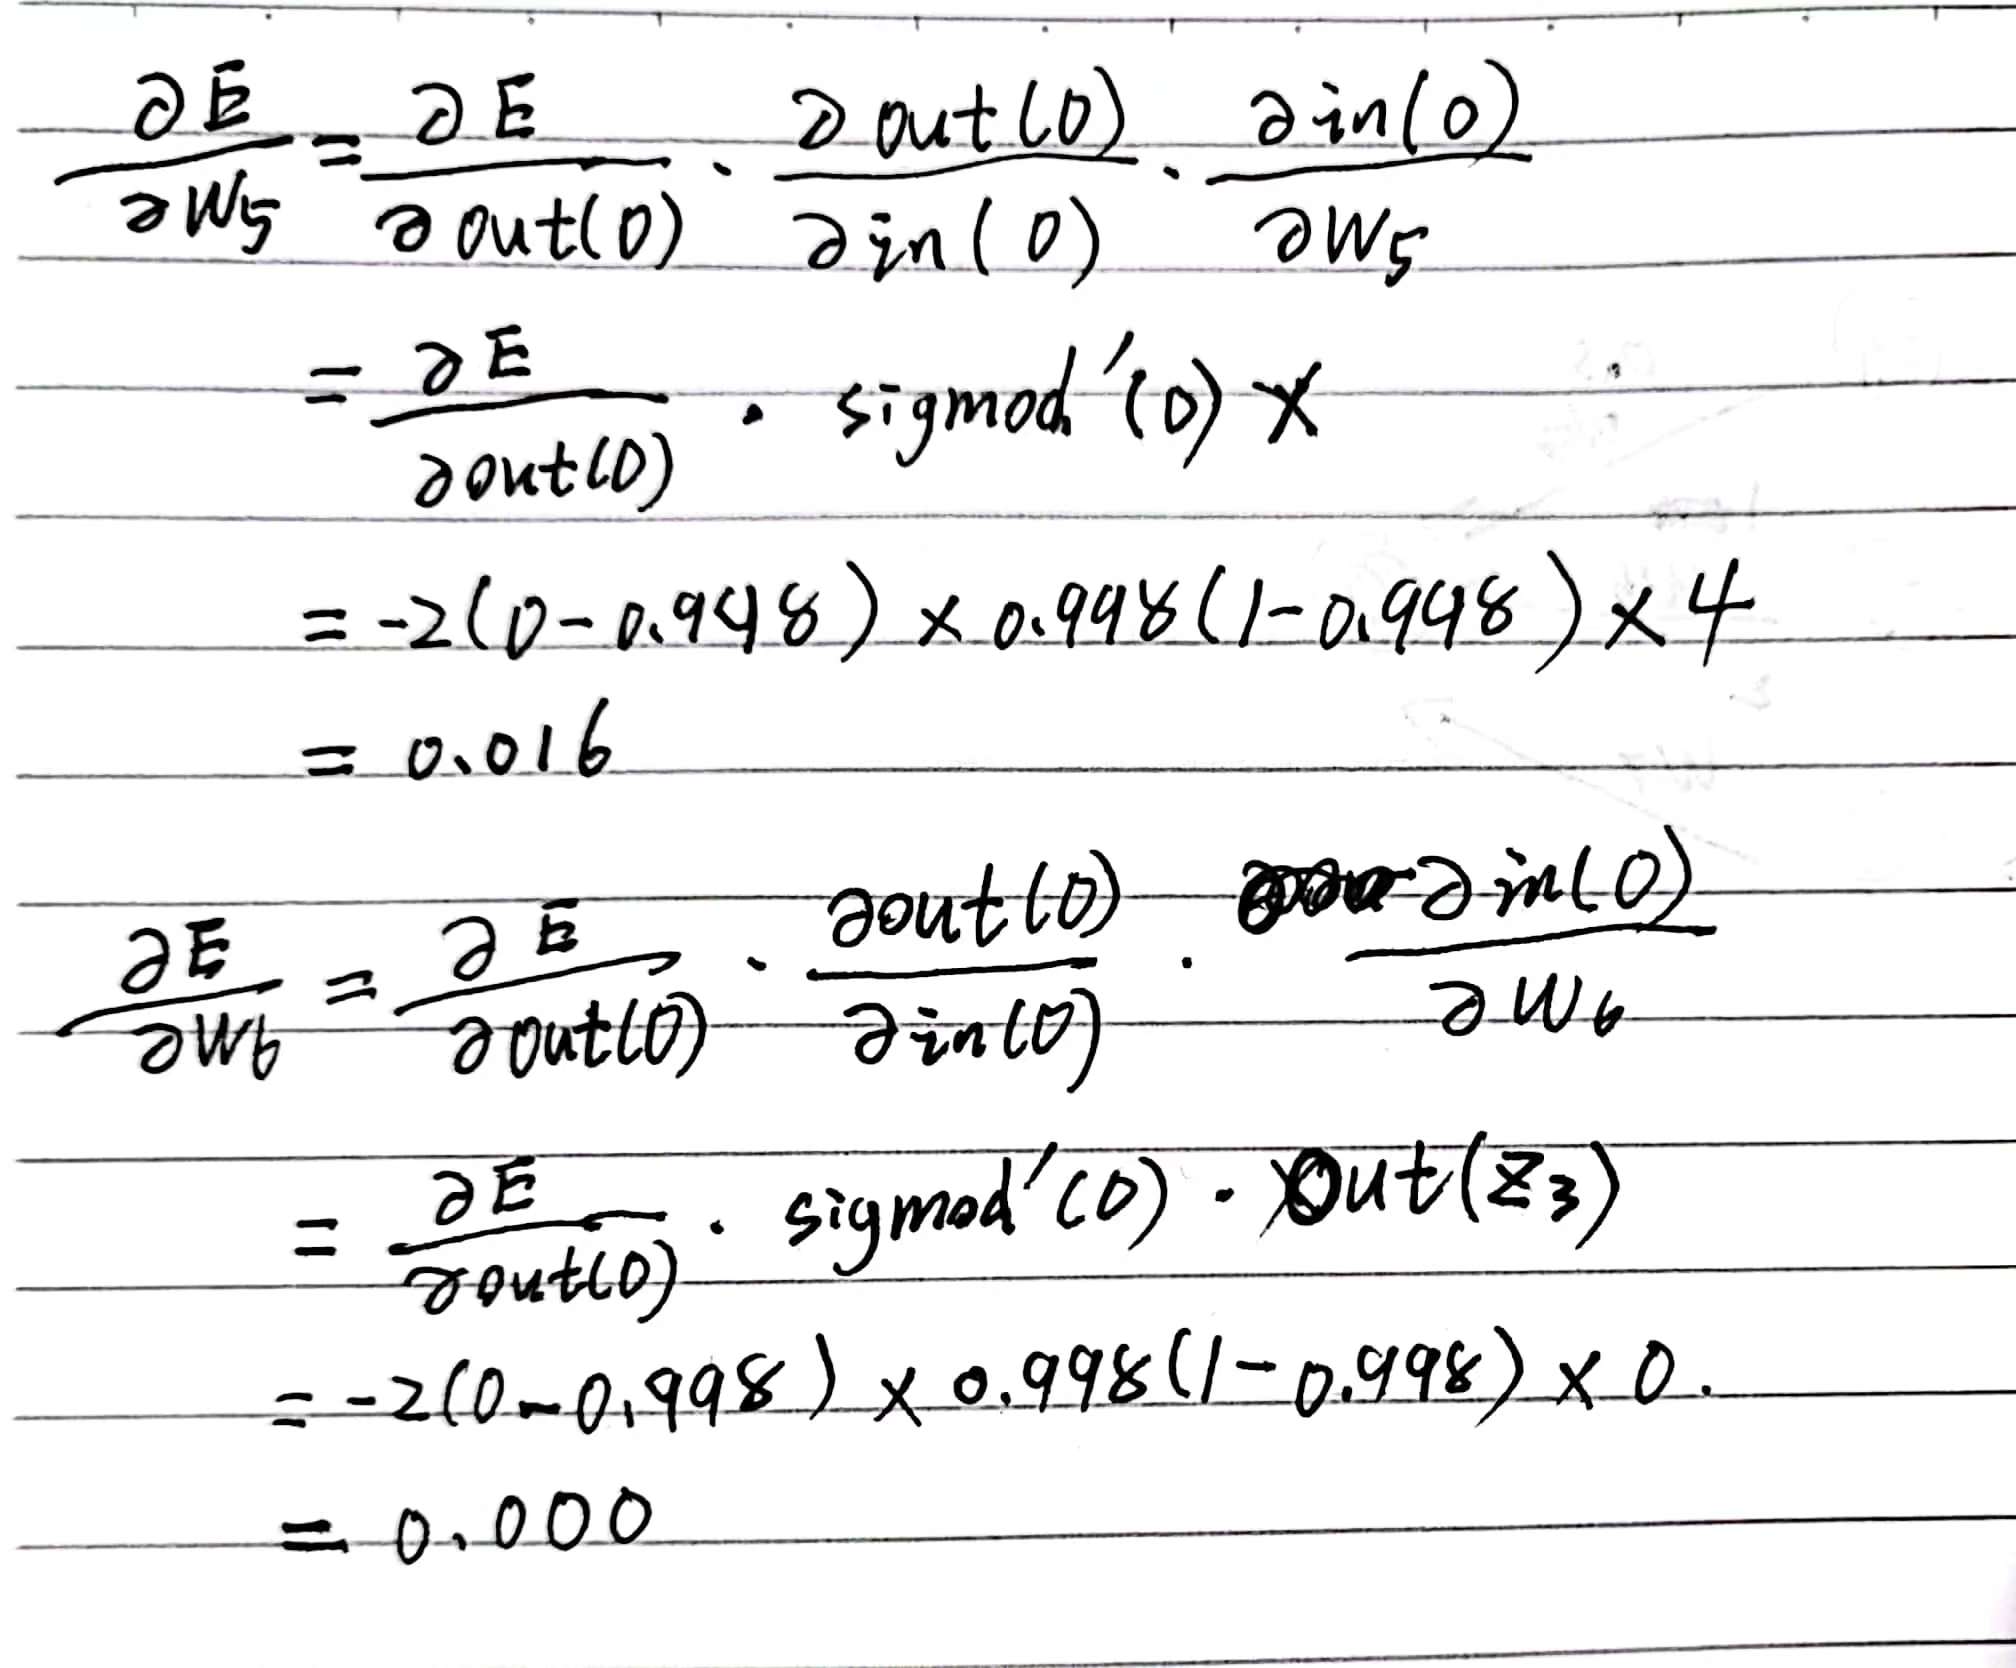 ∂E/∂W5 = ∂E/∂out(0) · ∂out(0)/∂in(0) · ∂in(0)/∂W5
= ∂E/∂out(0) · sigmod'(0) X
= -2(0-0.998) × 0.998(1-0.998) × 4
= 0.016
∂E/∂W6 = ∂E/∂out(0) · ∂out(0)/∂in(0) · ∂in(0)/∂W6
= ∂E/∂out(0) · sigmod'(0) · out(z3)
= -2(0-0.998) × 0.998(1-0.998) × 0.
= 0.000